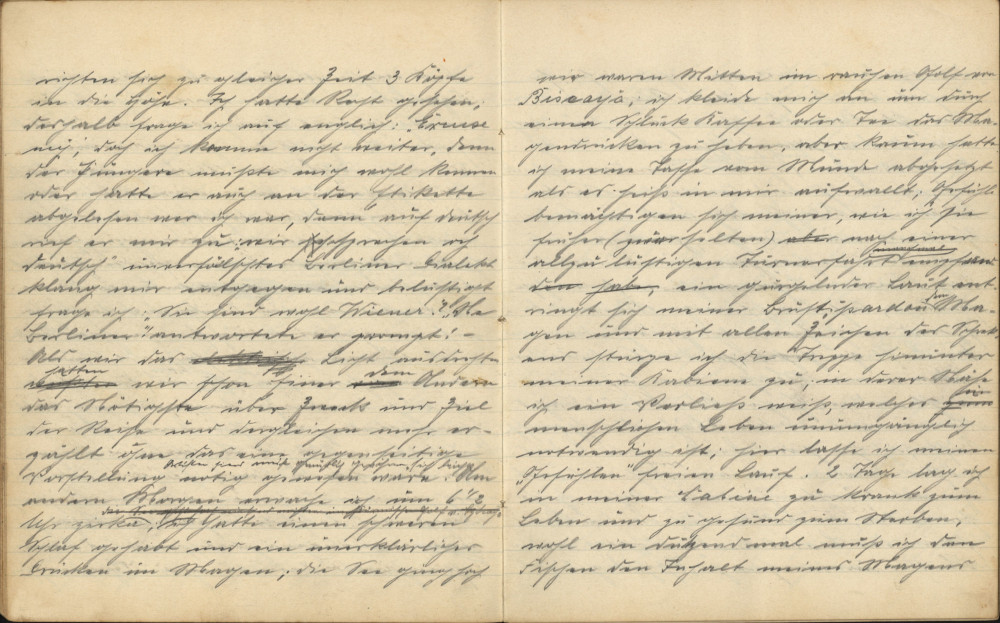 richten sich zu gleicher Zeit 3 Köpfe
in die Höhe. Ich hatte Rast gesehen,
deshalb frage ich auf englich: "Excuse
me, doch ich komme nicht weiter, denn
der Jüngere mußte mich wohl kennen
oder hatte er auch an der Etikette
abgelesen wer ich war, denn auf deutsch
rief er mir zu: wir sprechen och
deutsch" unverfälschtes Berliner Dialekt
klang mir entgegen und belustigt
frage ich "Sie sind wohl Wiener"? "Ne
Berliner" antwortete er prompt! -
Als wir das Licht ausdrehten
hatten wir schon einer dem Andern
das Nötigste über Zweck und Ziel
der Reise und dergleichen mehr er-
zählt ohne das eine gegenseitige
Vorstellung nötig gewesen wäre. Am
andern Morgen erwache ich um 6 1/2
Uhr zirka, ich hatte einen schweren
Schlaf gehabt und ein unerklärliches
Drücken im Magen; die See ging hoch
wir waren Mitten im rauhen Golf von
Biscaya; ich kleide mich an um durch
einen Schluck Kaffee oder Tee das Ma-
gendrücken zu heben, aber kaum hatte
ich meine Tasse vom Munde abgesetzt
als es heiß in mir aufwallt; Gefühle
bemächtigen sich meiner, wie ich sie
früher (zwar selten) aber nach einer
allzu lustigen Turnerfahrt manchmal empfand
den habe, ein gurgelnder Laut ent-
ringt sich meiner Brust pardon dem Ma-
gen und mit allen Zeichen des Schreck
ens stürze ich die Treppe hinunter
meiner Kabiene zu, in derer Nähe
ich ein Verließ weiß, welches für
menschliches Leben unumgänglich
notwendig ist; hier lasse ich meinen
"Gefühlen" freien Lauf. 2 Tage lag ich
in meiner Cabine zu krank zum
Leben und zu gesund zum Sterben,
wohl ein dutzendmal muß ich den
Fischen den Inhalt meines Magens